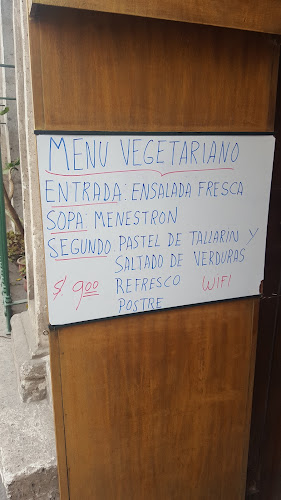 MENU VEGETARIANO
ENTRADA: ENSALADA FRESCA
SOPA: MENESTRON
SEGUNDO PASTEL DE TALLARIN Y
SALTADO DE VERDURAS
S/. 9.00 REFRESCO WIFI
POSTRE